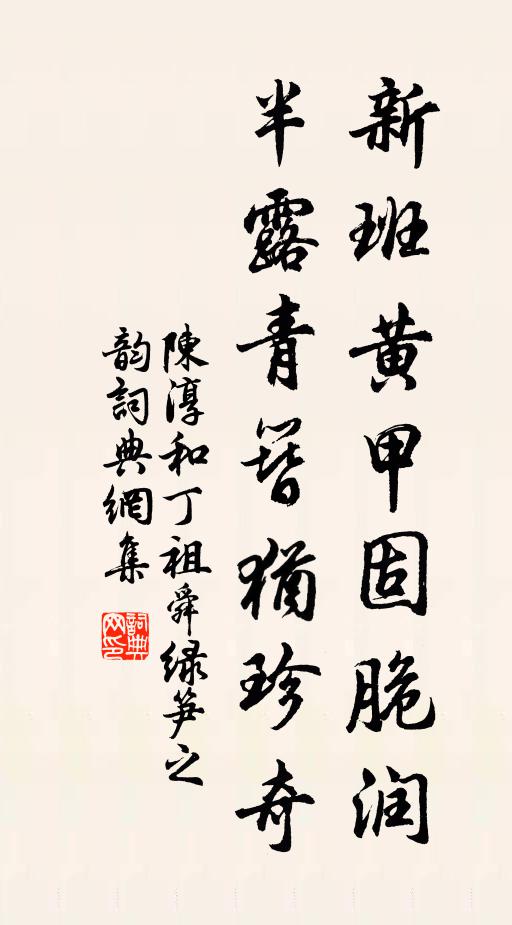 新班黄甲固脆润
半露青簪猶珍奇
陳淳和丁祖舜緑笋之
韵詞典網集
詞典网印